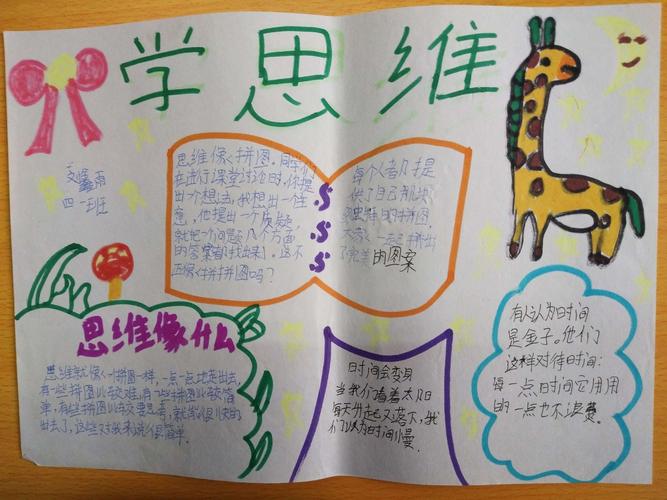 学思维
雨
四一班
思维像<拼图。同学们
在进行课堂讨论时，你提
出一个想法，我想出一个主
意，他提出一个质疑，
就把一个问题从几个方面
的答案都找出来了。这不
正像<拼拼图吗？
每个人都几乎提
供了自己
独特的拼图，
大家一起拼出
了完美的图案
思维像什么
思维就像<拼图一样，一点一点地走出去，
有些拼图比较难，有一些拼图比较简
单，有些拼图比较要思考，就就很快的
出去了，这些对我来说很简单。
时间会变身
当我们看着太阳
每天升起又落下，我
们以为时间很慢。
有人认为时间
是金子。他们
这样对待时间：
每一点时间它用用
的一点也不浪费。